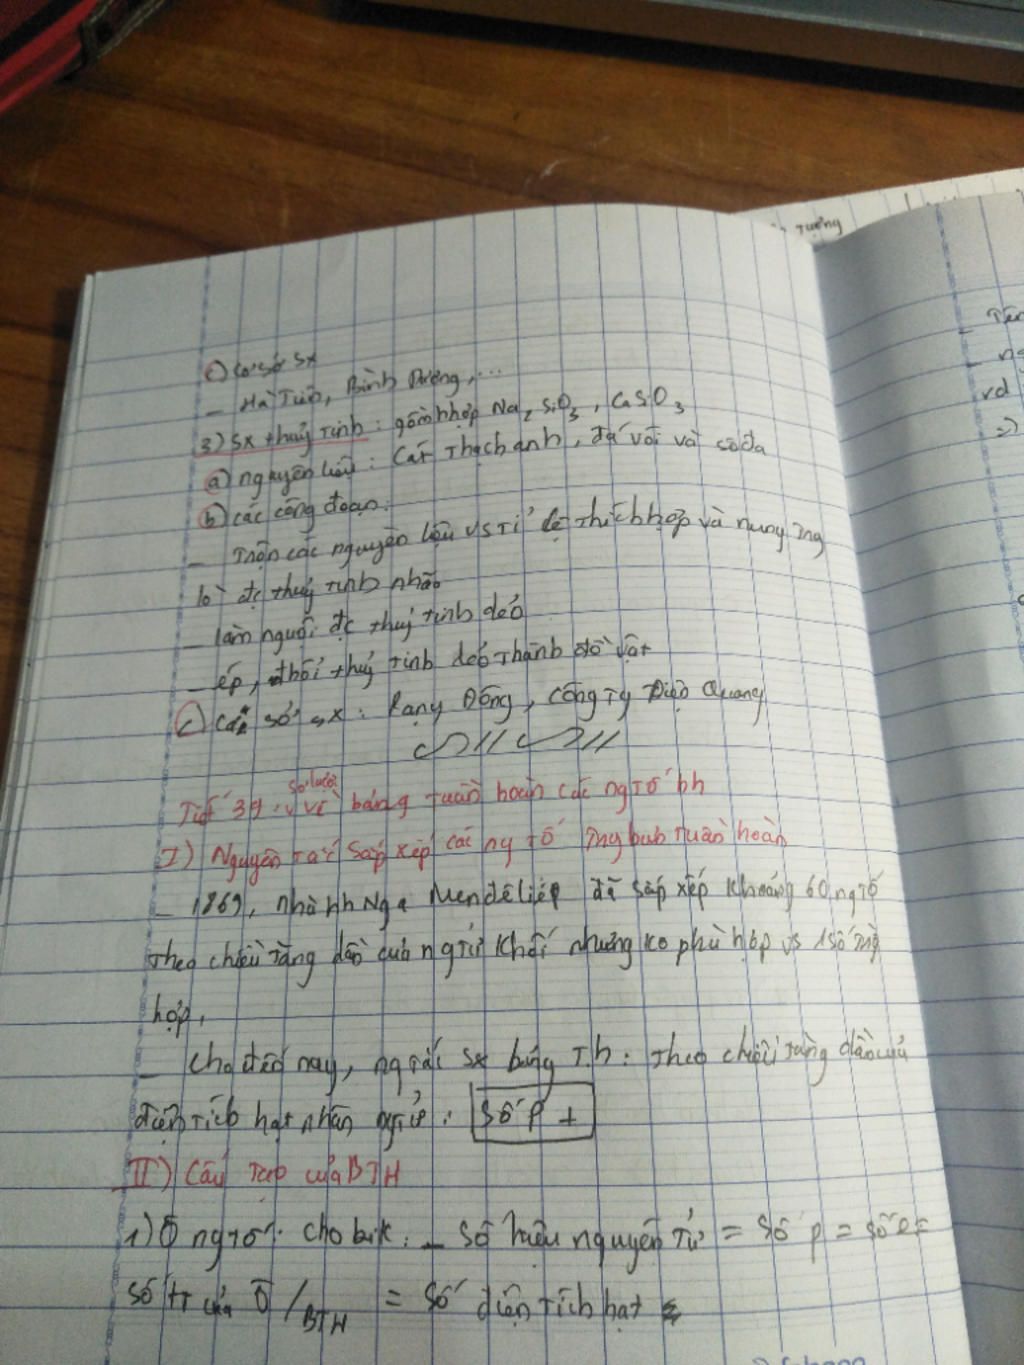 c) Cơ sở sx
_ Hà Tiên, Bình Dương,...
3) Sx thuỷ tinh: gồm hhợp Na2SiO3, CaSiO3
a) nguyên liệu: Cát thạch anh, đá vôi và sôđa
b) các công đoạn:
_ Trộn các nguyên liệu vs tỉ lệ thích hợp và nung trg
lò đc thuỷ tinh nhão
_ làm nguội đc thuỷ tinh dẻo
_ ép, thổi thuỷ tinh dẻo thành đồ vật
c) Các sở sx: Rạng Đông, công ty Điện Quang
sơ lược
Tiết 39: v về bảng tuần hoàn các ng tố hh
I) Nguyên tắc sắp xếp các ng tố trg bảng tuần hoàn
_ 1869, nhà hh Nga Menđêlêép đã sắp xếp khoảng 60 ng tố
theo chiều tăng dần của ng tử khối nhưng ko phù hợp vs 1 số trg
hợp.
_ Cho đến nay, ng tắc sx bảng T.h: theo chiều tăng dần của
điện tích hạt nhân ng tử: số p +
II) Cấu tạo của BTH
1) Ô ng tố: cho biết: _ Số hiệu nguyên tử = số p = số e =
số tt của Ô/BTH = số điện tích hạt
Tên
vd
=)
tượng